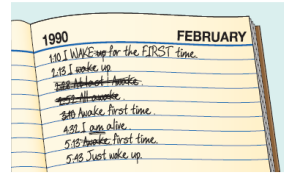 1990 FEBRUARY
1:10 I WAKE up for the FIRST time.
2:13 I wake up
2:22 At last I Awake.
4:52 All awake.
3:40 Awake first time.
4:32 I am alive.
5:13 Awake first time.
5:43 Just woke up.